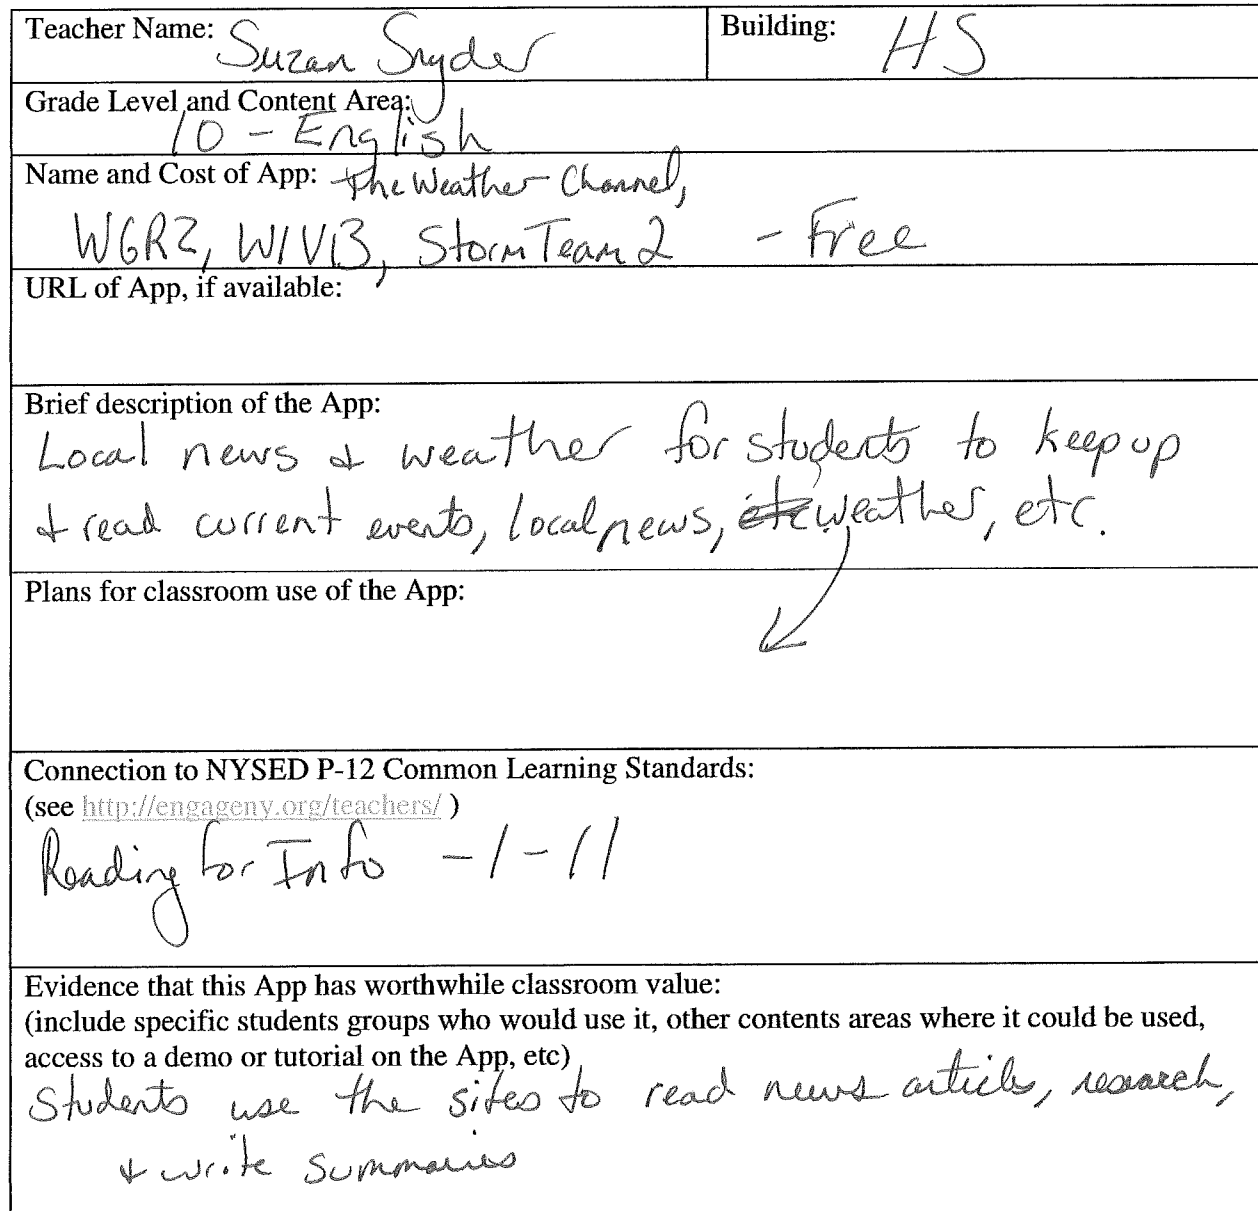 Teacher Name: Suzan Snyder Building: HS
Grade Level and Content Area:
10 - English
Name and Cost of App: The Weather Channel,
WGRZ, WIVB, Storm Team 2 - Free
URL of App, if available:
Brief description of the App:
Local news & weather for students to keep up
& read current events, local news, weather, etc.
Plans for classroom use of the App:
Connection to NYSED P-12 Common Learning Standards:
(see http://engageny.org/teachers/ )
Reading for Info - 1 - 11
Evidence that this App has worthwhile classroom value:
(include specific students groups who would use it, other contents areas where it could be used,
access to a demo or tutorial on the App, etc)
Students use the sites to read news articles, research,
& write summaries